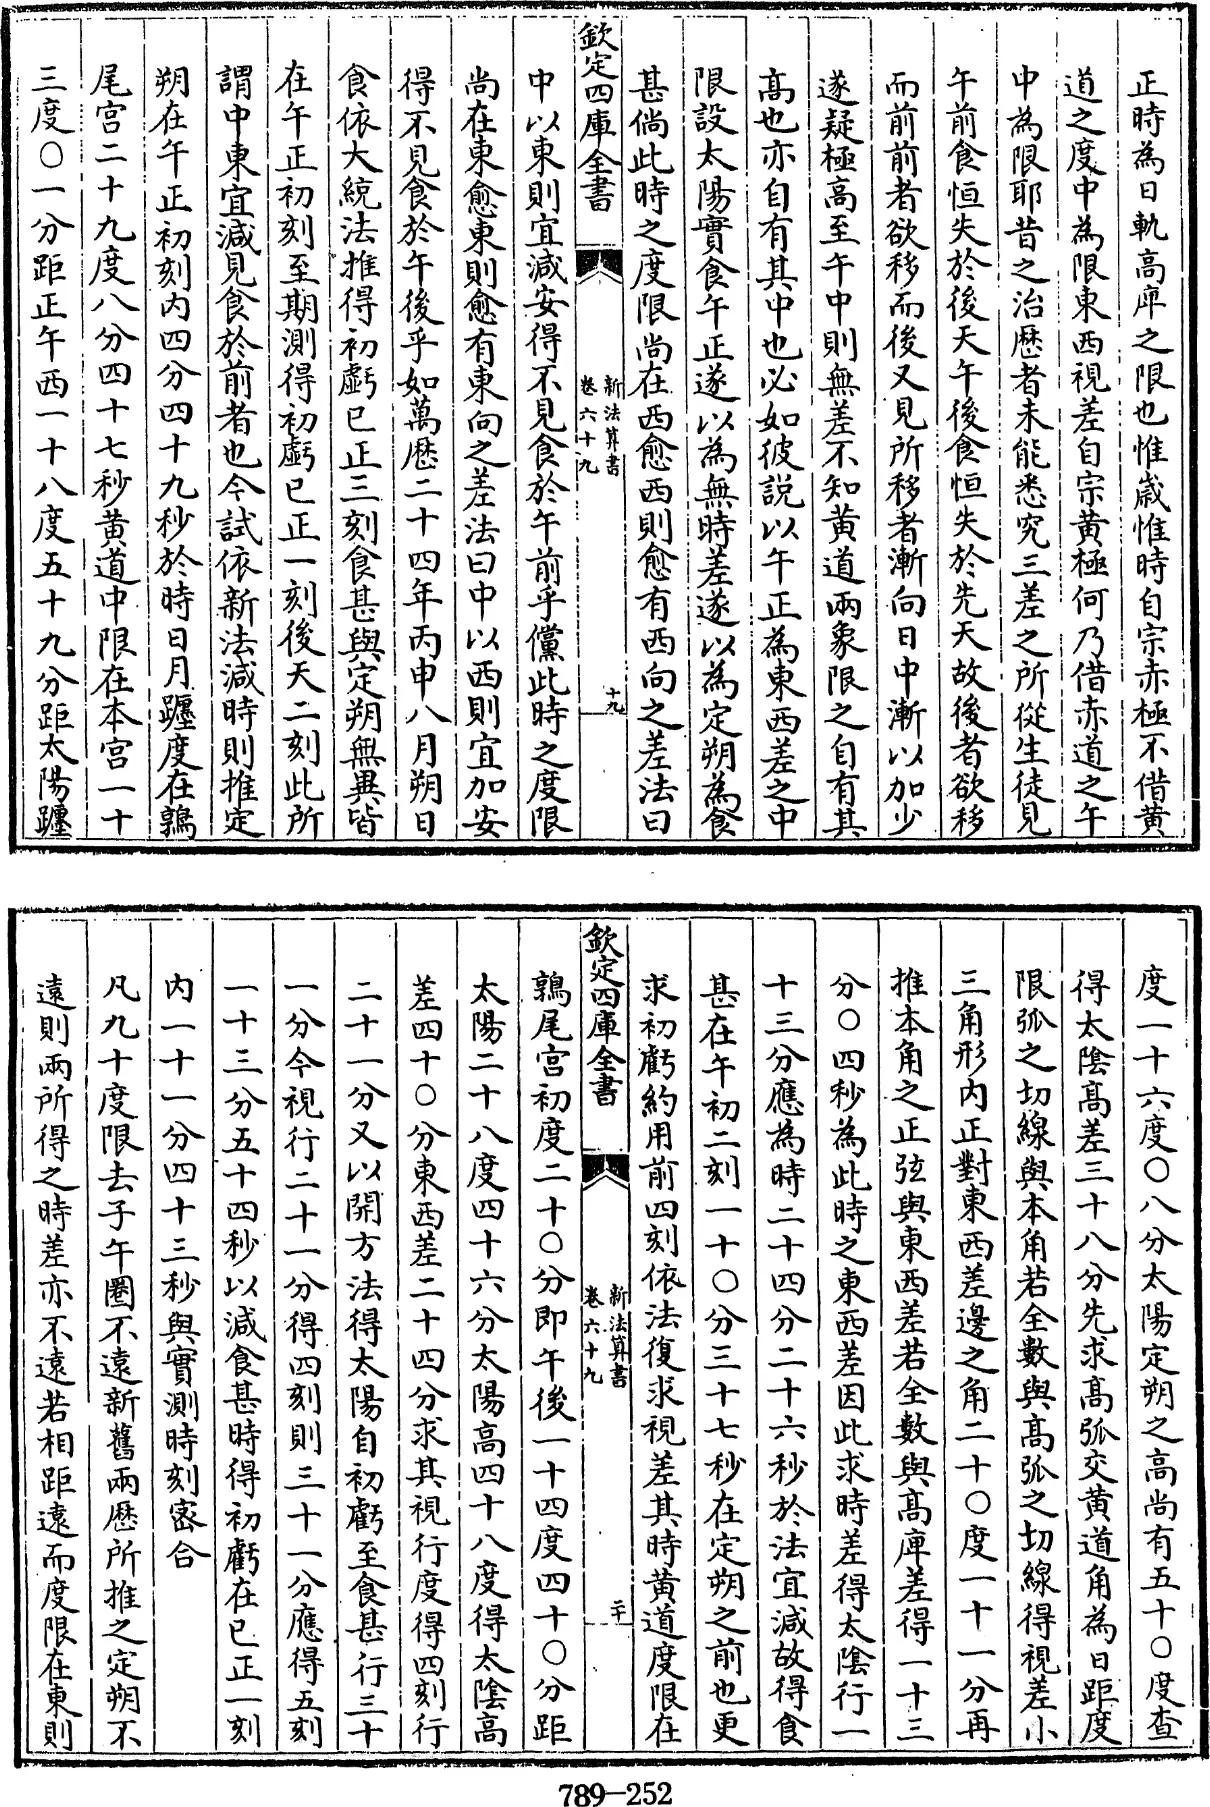 正時為日軌高庳之限也惟嵗惟時自宗赤極不借黄
道之度中為限東西視差自宗黄極何乃借赤道之午
中為限耶昔之治厯者未能悉究三差之所從生徒見
午前食恒失於後天午後食恒失於先天故後者欲移
而前前者欲移而後又見所移者漸向日中漸以加少
遂疑極高至午中則無差不知黄道兩象限之自有其
高也亦自有其中也必如彼説以午正為東西差之中
限設太陽實食午正遂以為無時差遂以為定朔為食
甚倘此時之度限尚在西愈西則愈有西向之差法曰
欽定四庫全書
新法算書
卷六十九
十九
中以東則宜減安得不見食於午前乎儻此時之度限
尚在東愈東則愈有東向之差法曰中以西則宜加安
得不見食於午後乎如萬厯二十四年丙申八月朔日
食依大統法推得初虧巳正三刻食甚與定朔無異皆
在午正初刻至期測得初虧巳正一刻後天二刻此所
謂中東宜減見食於前者也今試依新法減時則推定
朔在午正初刻内四分四十九秒於時日月躔度在鶉
尾宫二十九度八分四十七秒黄道中限在本宫一十
三度〇一分距正午西一十八度五十九分距太陽躔
度一十六度〇八分太陽定朔之高尚有五十〇度查
得太陰高差三十八分先求高弧交黄道角為日距度
限弧之切線與本角若全數與高弧之切線得視差小
三角形内正對東西差邊之角二十〇度一十一分再
推本角之正弦與東西差若全數與高庳差得一十三
分〇四秒為此時之東西差因此求時差得太陰行一
十三分應為時二十四分二十六秒於法宜減故得食
甚在午初二刻一十〇分三十七秒在定朔之前也更
求初虧約用前四刻依法復求視差其時黄道度限在
欽定四庫全書
新法算書
卷六十九
二十
鶉尾宫初度二十〇分即午後一十四度四十〇分距
太陽二十八度四十六分太陽高四十八度得太陰高
差四十〇分東西差二十四分求其視行度得四刻行
二十一分又以開方法得太陽自初虧至食甚行三十
一分今視行二十一分得四刻則三十一分應得五刻
一十三分五十四秒以減食甚時得初虧在巳正一刻
内一十一分四十三秒與實測時刻宻合
凡九十度限去子午圈不遠新舊兩厯所推之定朔不
遠則兩所得之時差亦不遠若相距遠而度限在東則
789—252